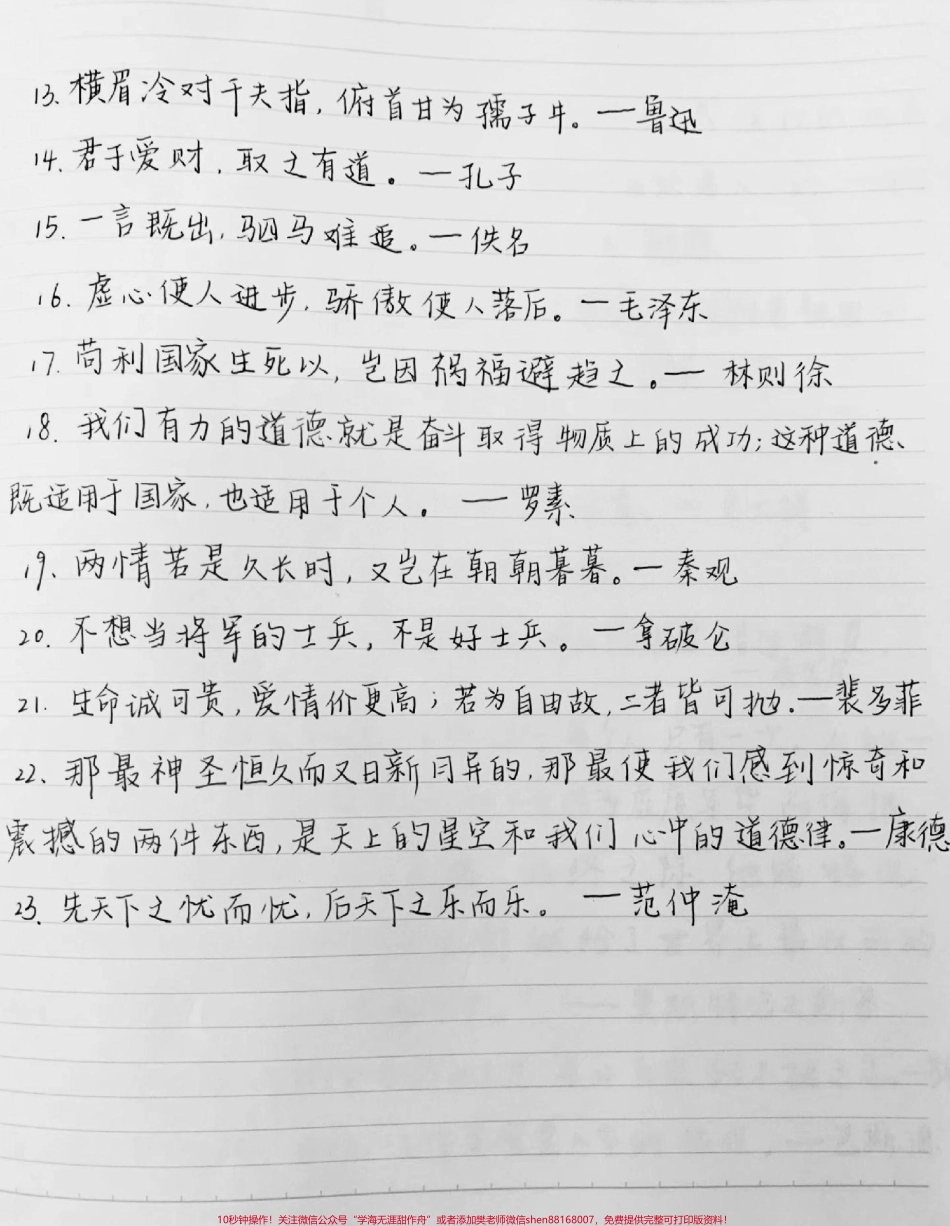 13. 横眉冷对千夫指，俯首甘为孺子牛。—鲁迅
14. 君子爱财，取之有道。—孔子
15. 一言既出，驷马难追。—佚名
16. 虚心使人进步，骄傲使人落后。—毛泽东
17. 苟利国家生死以，岂因祸福避趋之。— 林则徐
18. 我们有力的道德就是奋斗取得物质上的成功；这种道德
既适用于国家，也适用于个人。 —罗素
19、两情若是久长时，又岂在朝朝暮暮。—秦观
20. 不想当将军的士兵，不是好士兵。—拿破仑
21. 生命诚可贵，爱情价更高；若为自由故，二者皆可抛.—裴多菲
22. 那最神圣恒久而又日新月异的，那最使我们感到惊奇和
震撼的两件东西，是天上的星空和我们心中的道德律。—康德
23、先天下之忧而忧，后天下之乐而乐。 —范仲淹
10秒钟操作！关注微信公众号“学海无涯甜作舟”或者添加樊老师微信shen88168007，免费提供完整可打印版资料！